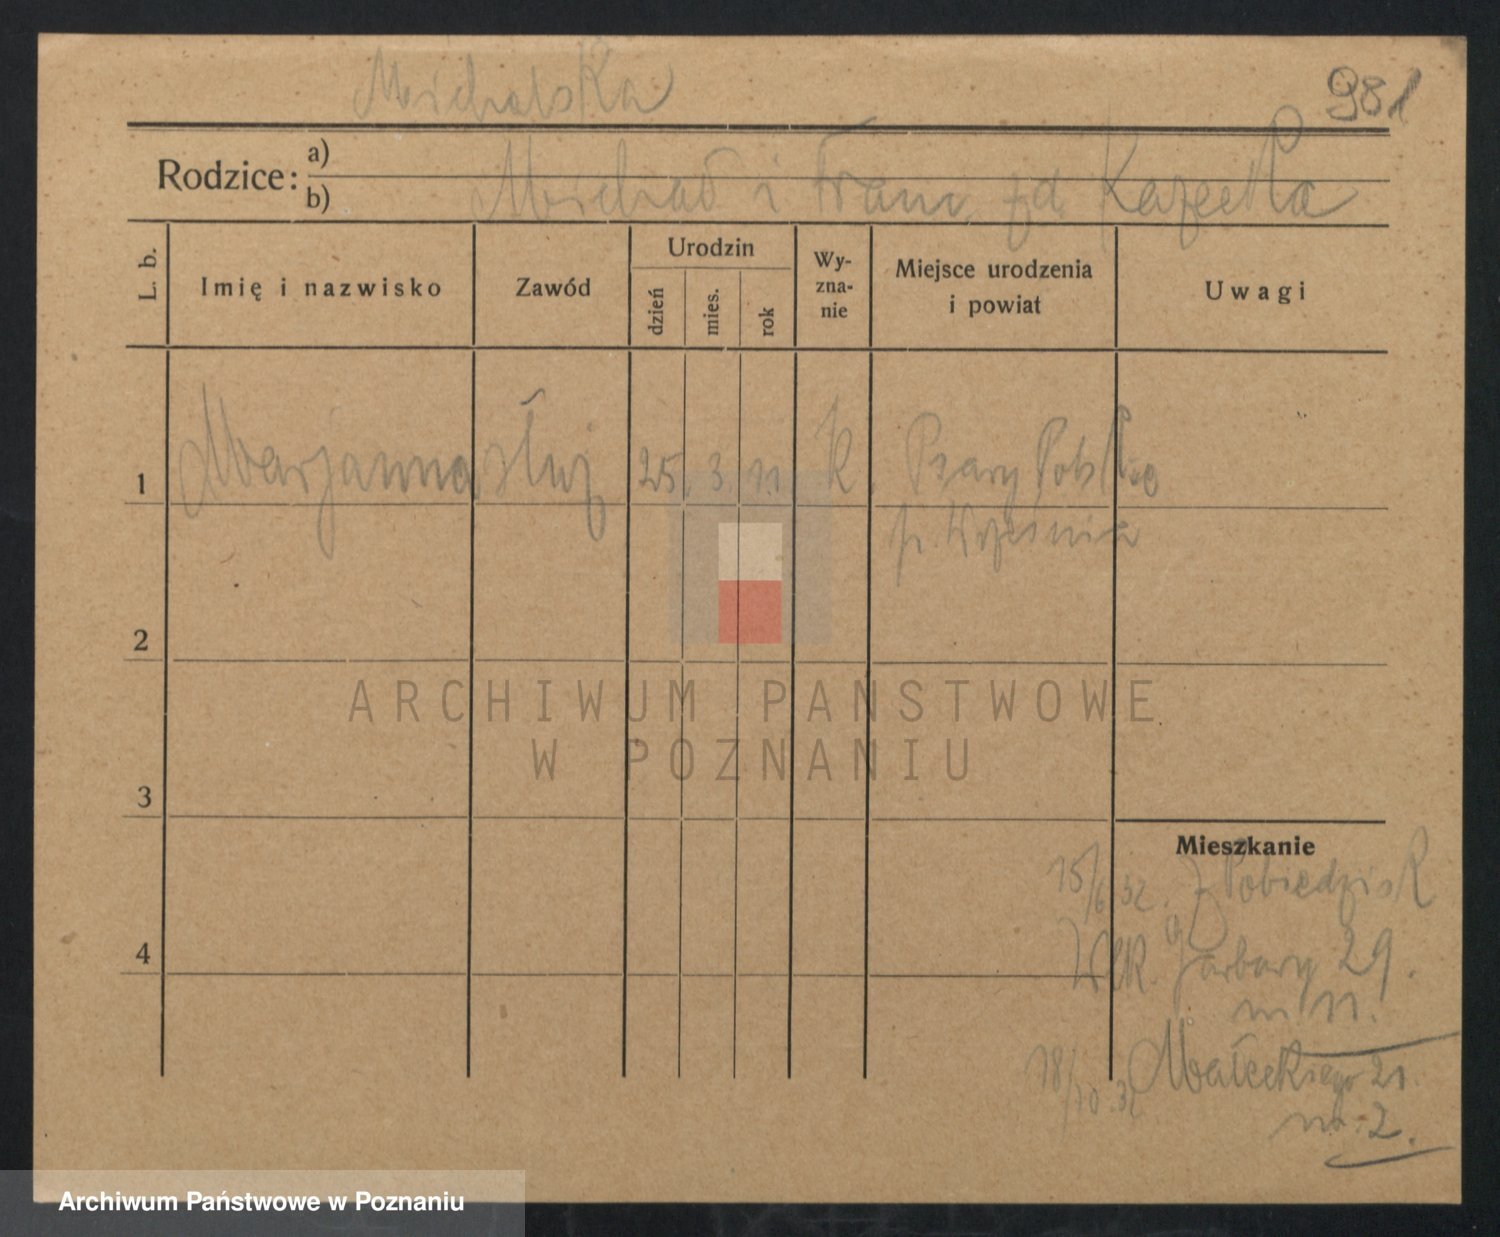 Michalska
981
Rodzice:
a)
b) Michał i Fran. zd.
L. b.
Imię i nazwisko
Zawód
Urodzin
dzień
mies.
rok
Wy-
zna-
nie
Miejsce urodzenia
i powiat
Uwagi
1 Marjanna służ 25. 3. 11. k. Psary Polskie
p. Września
2
ARCHIWUM PAŃSTWOWE
W POZNANIU
3
Mieszkanie
15/6 32. z Pobiedzisk
4
Wlk. Garbary 29.
m 11.
18/10.32 Małeckiego 21.
m. 2.
Archiwum Państwowe w Poznaniu